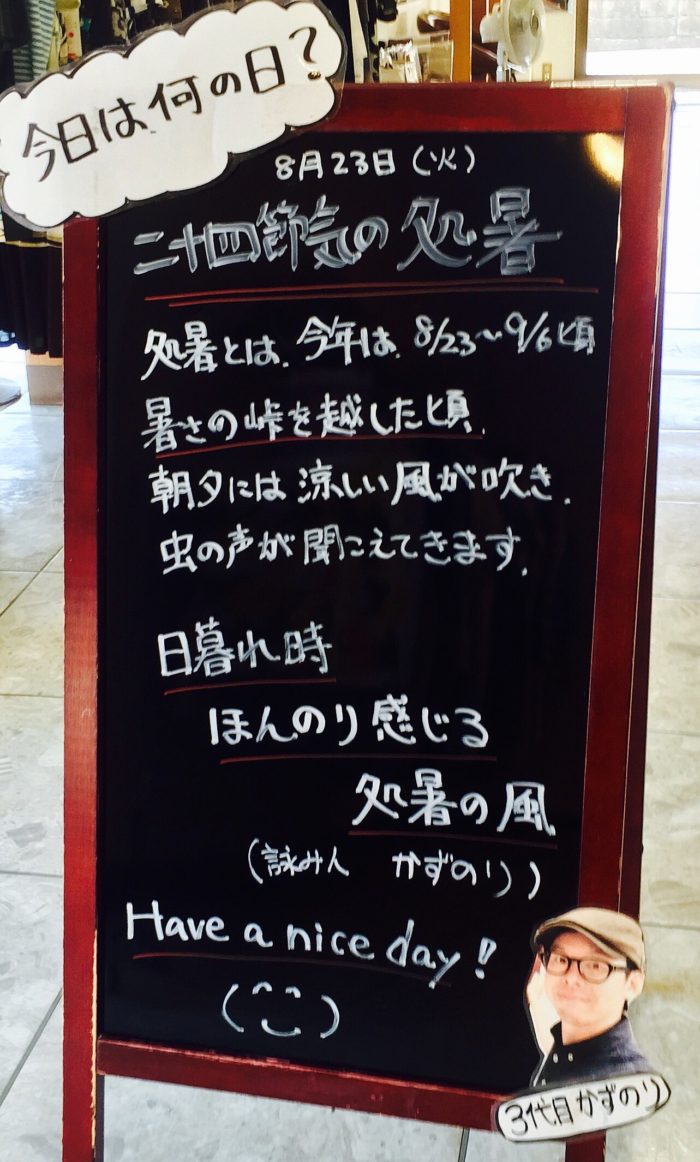 今日は何の日?
8月23日(火)
二十四節気の処暑
処暑とは、今年は、8/23〜9/6頃
暑さの峠を越した頃、
朝夕には涼しい風が吹き、
虫の声が聞こえてきます。
日暮れ時
ほんのり感じる
処暑の風
(詠み人 かずのり)
Have a nice day!
(^‿^)
3代目かずのり